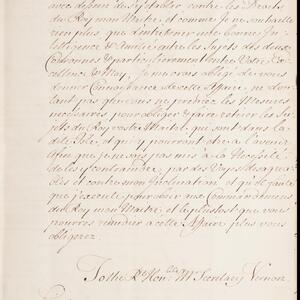 avec defense de s'y establir contre les Droits
du Roy mon Maitre et comme je ne souhaitte
rien plus, que d'entretenir une bonne In=
telligence & Amitié entre les Sujets des deux
Couronnes & particulierement entre Votre Ex=
cellence & Moy, je me crois obligé de vous
donner Connoissance de cette Affaire, ne dou=
tant pas que vous ne preniez les Mesures
necessaires pour obliger à faire retirer les Su=
jets du Roy votre Maitre, qui sont dans la=
dite Isle, et qui y pourront être a l'avenir
afin que je ne sois pas mis à la Necessité
de les y contraindre, par des Voyes desagre=
ables et contre mon Inclination, et qu'il faut
que j'execute pour obeir aux Commandemens
du Roy mon Maitre, et le plustost que vous
pourrez remedier a cette Affaire plus vous
obligerez.
To the Rt. Honble. Mr. Secretary Vernon.